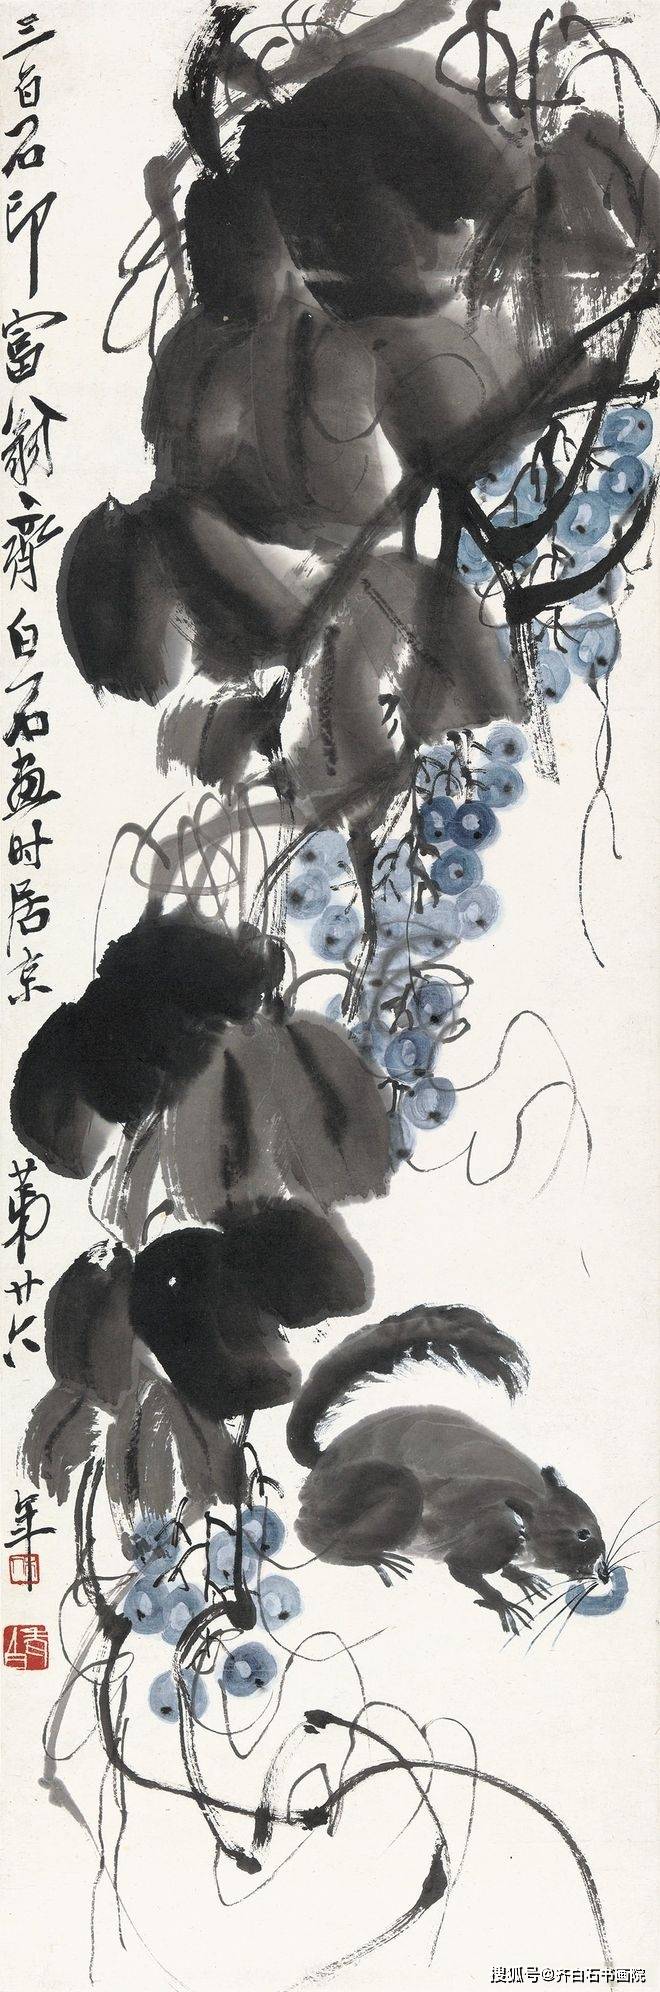 三百石印富翁齐白石画时居京
第廿六
年
搜狐号@齐白石书画院